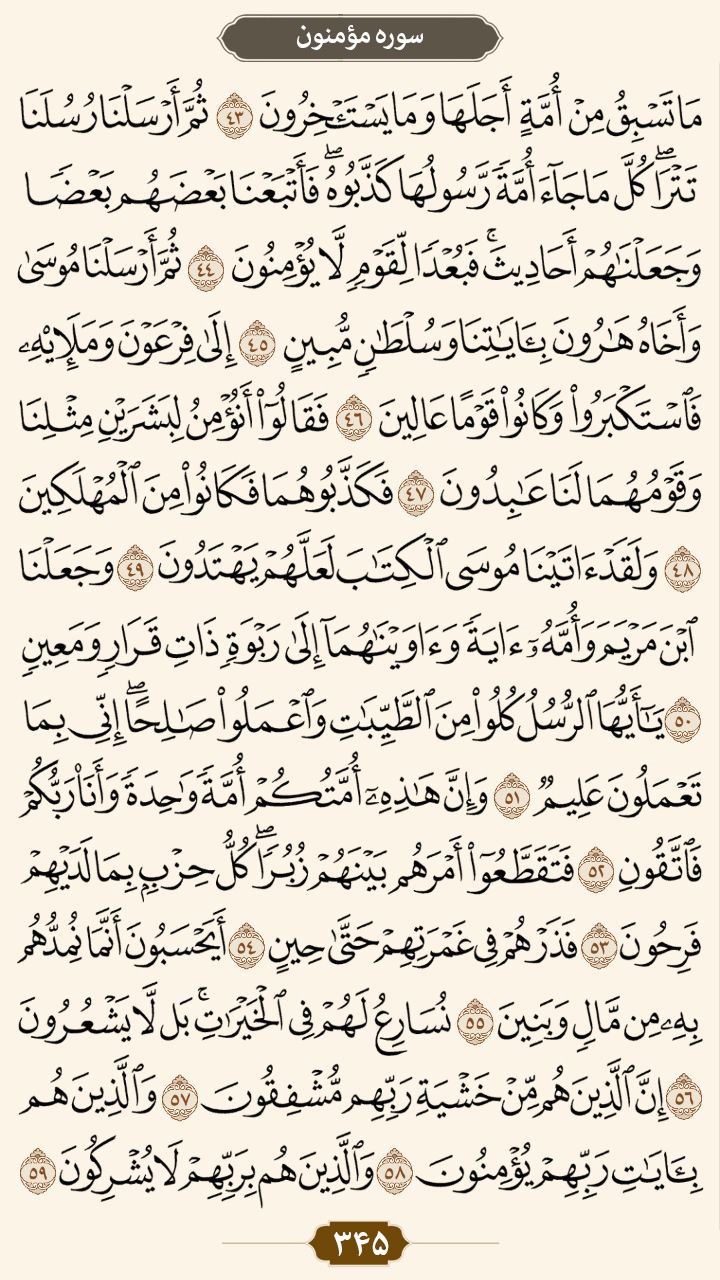 سوره مؤمنون
مَا تَسۡبِقُ مِنۡ أُمَّةٍ أَجَلَهَا وَمَا يَسۡتَـٔۡخِرُونَ ٤٣ ثُمَّ أَرۡسَلۡنَا رُسُلَنَا
تَتۡرَاۖ كُلَّ مَا جَآءَ أُمَّةٗ رَّسُولُهَا كَذَّبُوهُۖ فَأَتۡبَعۡنَا بَعۡضَهُم بَعۡضٗا
وَجَعَلۡنَٰهُمۡ أَحَادِيثَۚ فَبُعۡدٗا لِّقَوۡمٖ لَّا يُؤۡمِنُونَ ٤٤ ثُمَّ أَرۡسَلۡنَا مُوسَىٰ
وَأَخَاهُ هَٰرُونَ بِـَٔايَٰتِنَا وَسُلۡطَٰنٖ مُّبِينٍ ٤٥ إِلَىٰ فِرۡعَوۡنَ وَمَلَإِيْهِۦ
فَٱسۡتَكۡبَرُواْ وَكَانُواْ قَوۡمًا عَالِينَ ٤٦ فَقَالُوٓاْ أَنُؤۡمِنُ لِبَشَرَيۡنِ مِثۡلِنَا
وَقَوۡمُهُمَا لَنَا عَٰبِدُونَ ٤٧ فَكَذَّبُوهُمَا فَكَانُواْ مِنَ ٱلۡمُهۡلَكِينَ
٤٨ وَلَقَدۡ ءَاتَيۡنَا مُوسَى ٱلۡكِتَٰبَ لَعَلَّهُمۡ يَهۡتَدُونَ ٤٩ وَجَعَلۡنَا
ٱبۡنَ مَرۡيَمَ وَأُمَّهُۥٓ ءَايَةٗ وَءَاوَيۡنَٰهُمَآ إِلَىٰ رَبۡوَةٖ ذَاتِ قَرَارٖ وَمَعِينٖ
٥٠ يَٰٓأَيُّهَا ٱلرُّسُلُ كُلُواْ مِنَ ٱلطَّيِّبَٰتِ وَٱعۡمَلُواْ صَٰلِحًاۖ إِنِّي بِمَا
تَعۡمَلُونَ عَلِيمٞ ٥١ وَإِنَّ هَٰذِهِۦٓ أُمَّتُكُمۡ أُمَّةٗ وَٰحِدَةٗ وَأَنَا۠ رَبُّكُمۡ
فَٱتَّقُونِ ٥٢ فَتَقَطَّعُوٓاْ أَمۡرَهُم بَيۡنَهُمۡ زُبُرٗاۖ كُلُّ حِزۡبِۭ بِمَا لَدَيۡهِمۡ
فَرِحُونَ ٥٣ فَذَرۡهُمۡ فِي غَمۡرَتِهِمۡ حَتَّىٰ حِينٍ ٥٤ أَيَحۡسَبُونَ أَنَّمَا نُمِدُّهُم
بِهِۦ مِن مَّالٖ وَبَنِينَ ٥٥ نُسَارِعُ لَهُمۡ فِي ٱلۡخَيۡرَٰتِۚ بَل لَّا يَشۡعُرُونَ
٥٦ إِنَّ ٱلَّذِينَ هُم مِّنۡ خَشۡيَةِ رَبِّهِم مُّشۡفِقُونَ ٥٧ وَٱلَّذِينَ هُم
بِـَٔايَٰتِ رَبِّهِمۡ يُؤۡمِنُونَ ٥٨ وَٱلَّذِينَ هُم بِرَبِّهِمۡ لَا يُشۡرِكُونَ ٥٩
۳۴۵